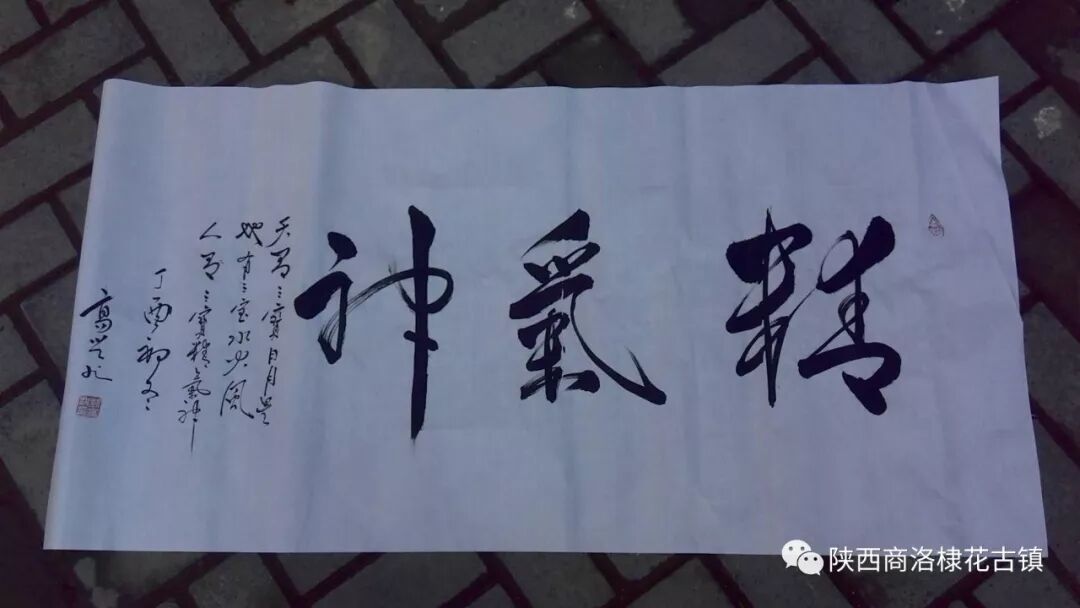 精氣神
天有三寶日月星
地有三宝水火風
人有三寶精氣神
丁酉初冬
陕西商洛棣花古镇